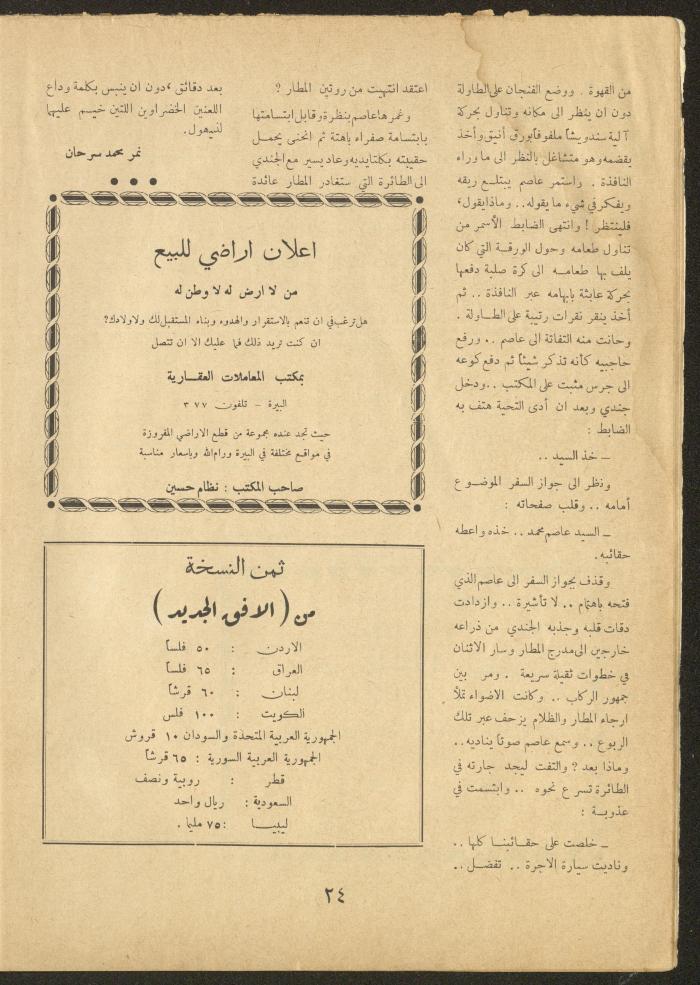 من القهوة . ووضع الفنجان على الطاولة
دون ان ينظر الى مكانه وتناول بحركة
آلية سندويشاً ملفوفاً بورق أنيق وأخذ
يقضمه وهو متشاغل بالنظر الى ما وراء
النافذة . واستمر عاصم يبتلع ريقه
ويفكر في شيء ما يقوله . . وماذا يقول ،
فلينتظر ! وانتهى الضابط الأسمر من
تناول طعامه وحول الورقة التي كان
يلف بها طعامه الى كرة صلبة دفعها
بحركة عابثة بابهامه عبر النافذة . . ثم
أخذ ينقر نقرات رتيبة على الطاولة .
وحانت منه التفاتة الى عاصم . . ورفع
حاجبيه كأنه تذكر شيئاً ثم دفع كوعه
الى جرس مثبت على المكتب . . ودخل
جندي وبعد ان أدى التحية هتف به
الضابط :
ـ خذ السيد . .
ونظر الى جواز السفر الموضوع
أمامه . . وقلب صفحاته :
ـ السيد عاصم محمد . . خذه واعطه
حقائبه .
وقذف بجواز السفر الى عاصم الذي
فتحه باهتمام . . لا تأشيرة . . وازدادت
دقات قلبه وجذبه الجندي من ذراعه
خارجين الى مدرج المطار وسار الاثنان
في خطوات ثقيلة سريعة . ومر بين
جمهور الركاب . . وكانت الاضواء تملأ
ارجاء المطار والظلام يزحف عبر تلك
الربوع . . وسمع عاصم صوتاً يناديه . .
وماذا بعد ? والتفت ليجد جارته في
الطائرة تسرع نحوه . . وابتسمت في
عذوبة :
ـ خلصت على حقائبنا كلها . .
وناديت سيارة الاجرة . . تفضل . .
اعتقد انتهيت من روتين المطار ?
وغمرها عاصم بنظرة وقابل ابتسامتها
بابتسامة صفراء باهتة ثم انحنى يحمل
حقيبته بكلتا يديه وعاد يسير مع الجندي
الى الطائرة التي ستغادر المطار عائدة
بعد دقائق ، دون ان ينبس بكلمة وداع
اللعنين الخضراوين اللتين خيم عليهما
لذهول .
نمر محمد سرحان
اعلان اراضي للبيع
من لا ارض له لا وطن له
هل ترغب في ان تنعم بالاستقرار والهدوء وبناء المستقبل لك ولاولادك؟
ان كنت تريد ذلك فما عليك الا ان تتصل
بمكتب المعاملات العقارية
البيرة – تلفون ٣٧٧
حيث تجد عنده مجموعة من قطع الاراضي المفروزة
في مواقع مختلفة في البيرة ورام الله وباسعار مناسبة
صاحب المكتب : نظام حسين
ثمن النسخة
من ( الافق الجديد )
الاردن : ٥٠ فلساً
العراق : ٦٥ فلساً
لبنان : ٦٠ قرشاً
الكويت : ١٠٠ فلس
الجمهورية العربية المتحدة والسودان ١٠ قروش
الجمهورية العربية السورية : ٦٥ قرشاً
قطر : روبية ونصف
السعودية : ريال واحد
ليبيا : ٧٥ مليما .
٢٤